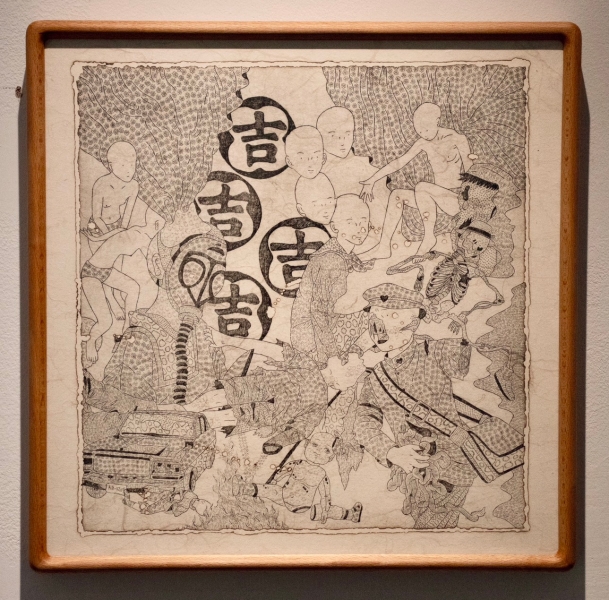 吉
吉
吉
吉